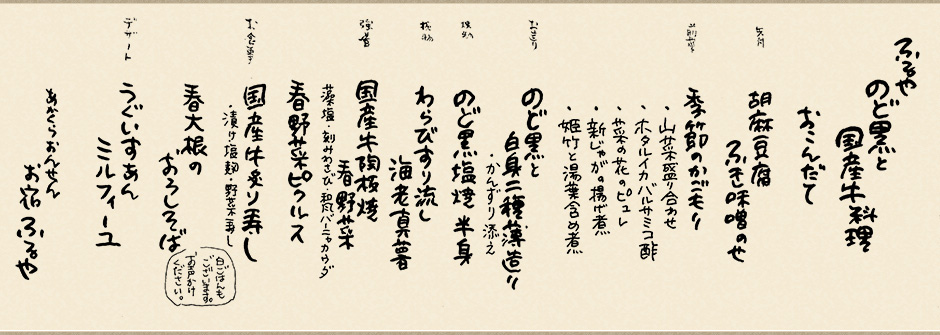 ふるや
のど黒と
国産牛料理
おこんだて
先付
胡麻豆腐
ふき味噌のせ
前菜
季節のかごもり
・山菜盛り合わせ
・ホタルイカバルサミコ酢
・菜の花のピュレ
・新じゃがの揚げ煮
・姫竹と湯葉含め煮
お造り
のど黒と
白身二種薄造り
・かんずり添え
焼物
のど黒塩焼 半身
椀物
わらびすり流し
海老真薯
強肴
国産牛陶板焼
春野菜
藻塩・刻みわさび・和風バーニャカウダ
春野菜ピクルス
お食事
国産牛炙り寿し
・漬け塩麹・野菜寿し
春大根の
おろしそば
白ごはんも
ございます。
お声かけ
ください。
デザート
うぐいすあん
ミルフィーユ
あかくらおんせん
お宿ふるや